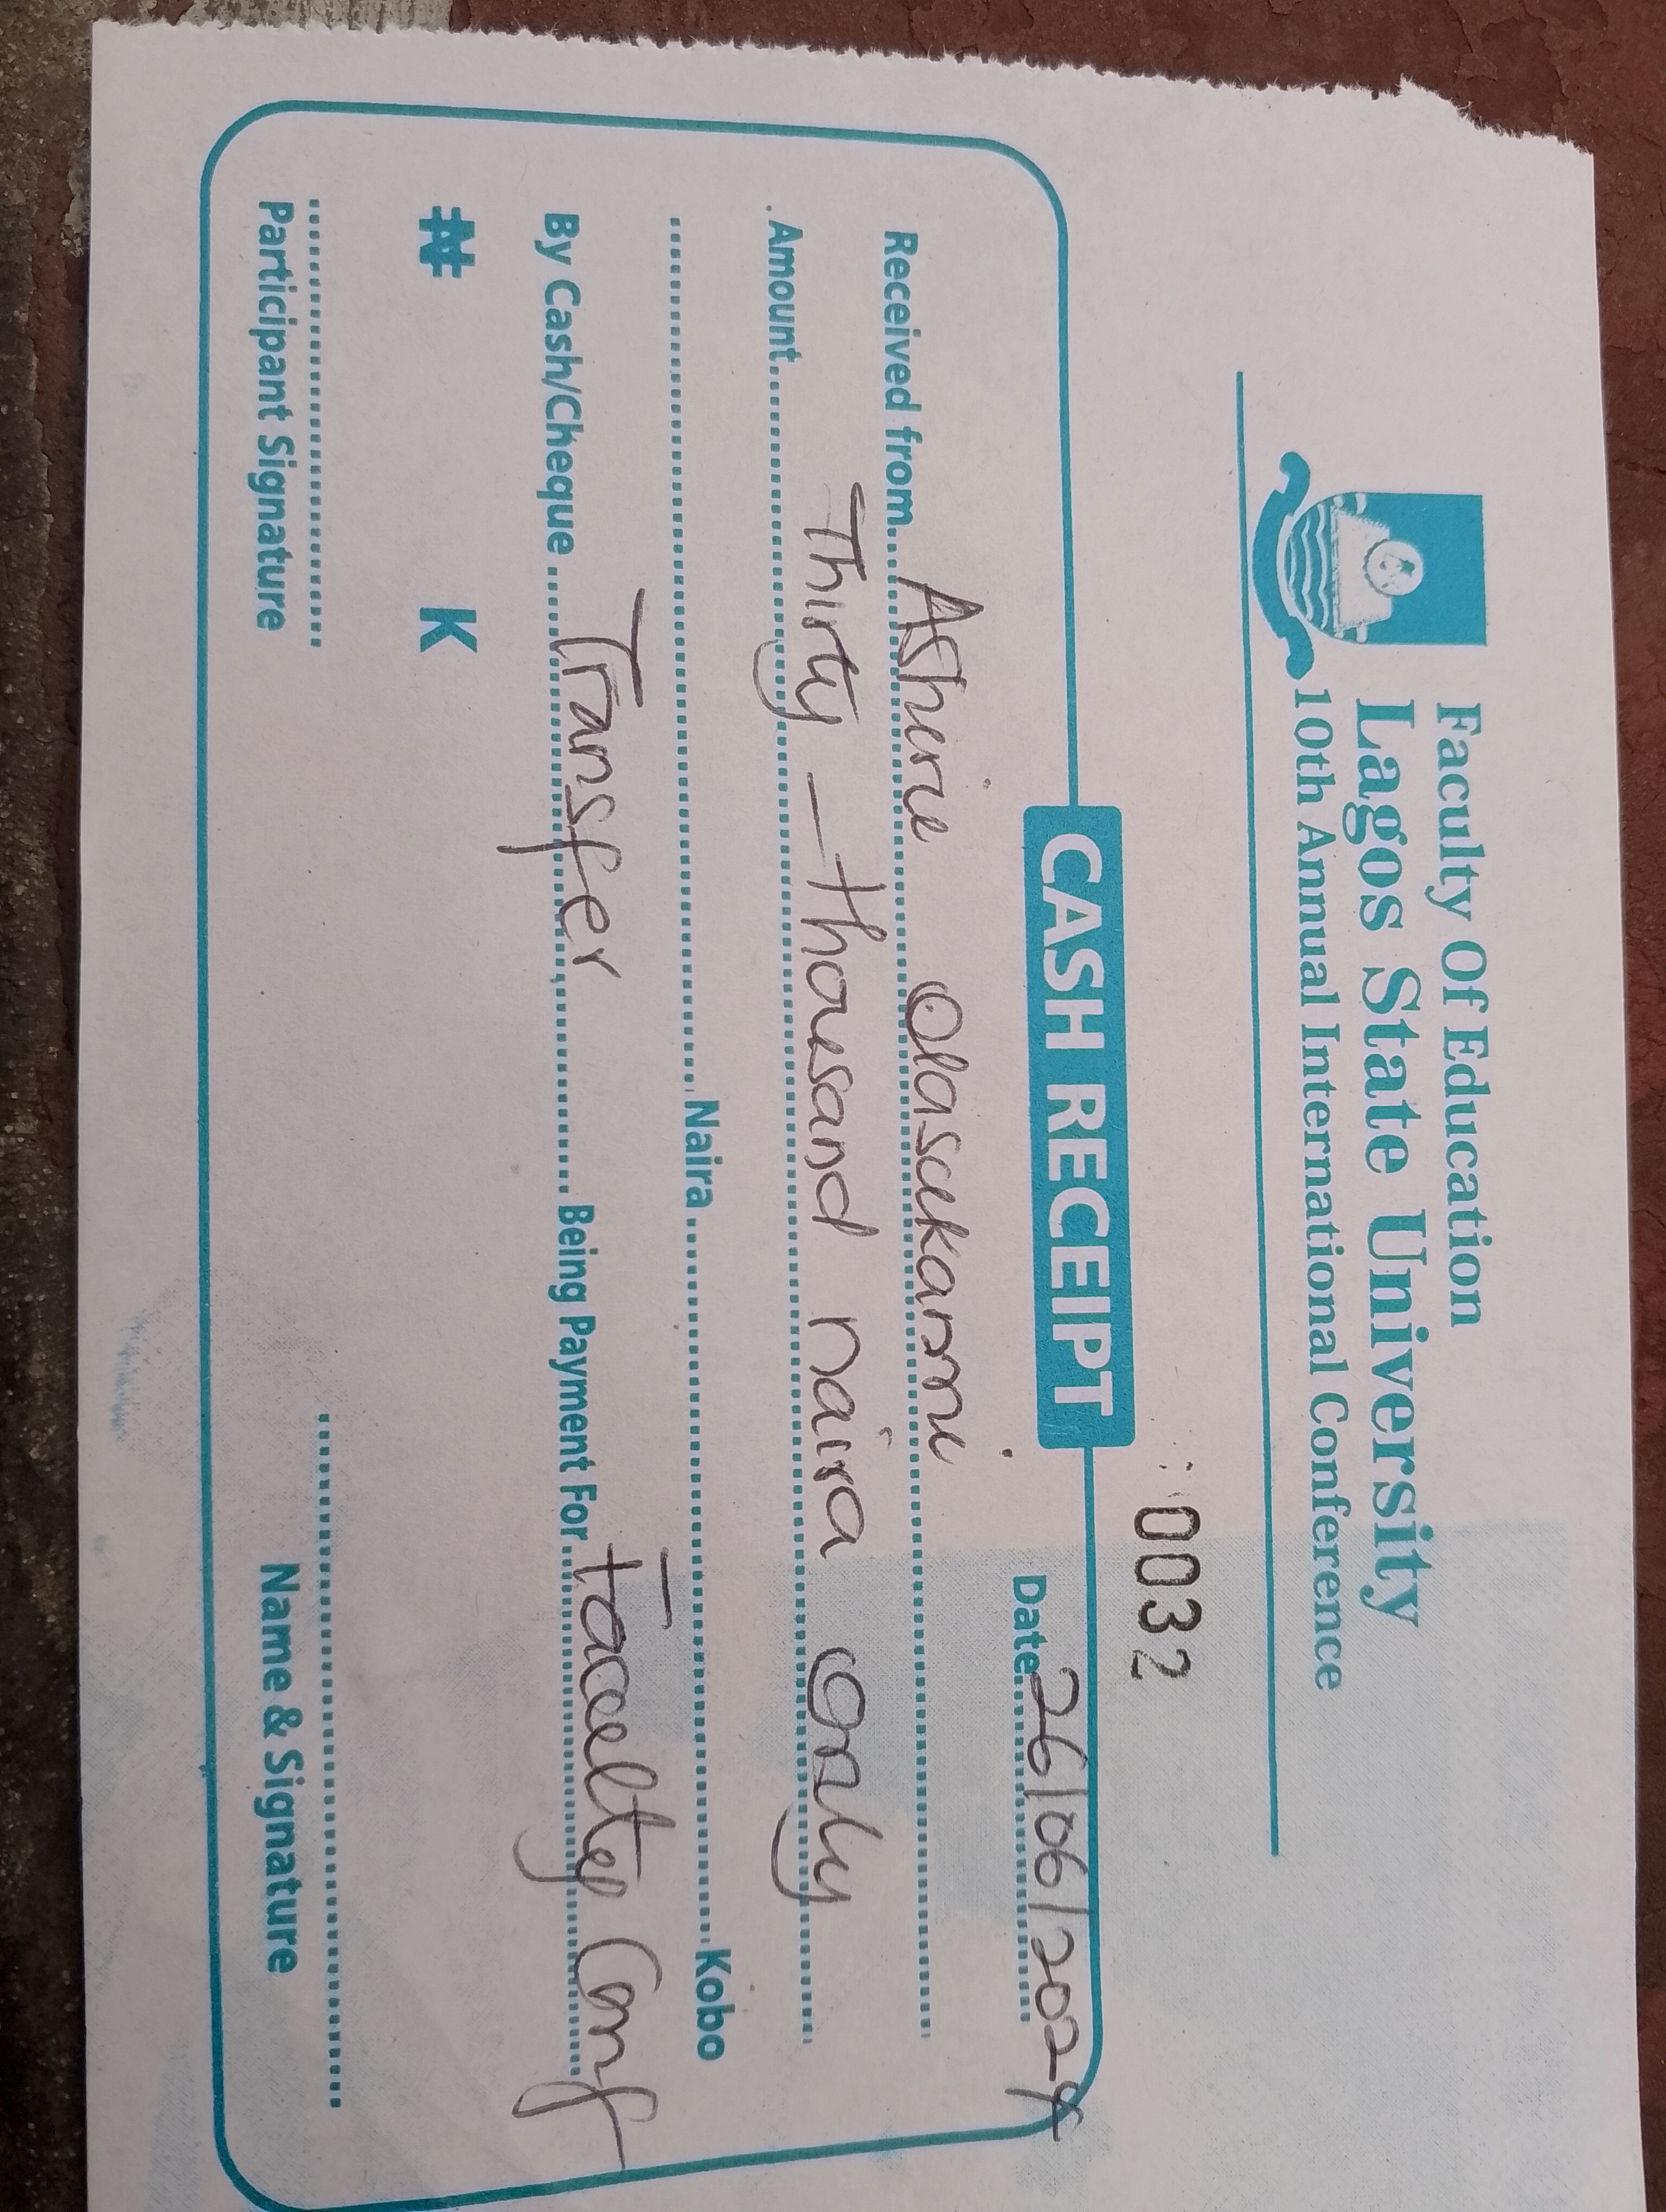 Faculty Of Education
Lagos State University
10th Annual International Conference
0032
CASH RECEIPT
Date 26/06/2024
Received from Asherie Olasukanmi
Amount Thirty-thousand naira only
Naira Kobo
By Cash/Cheque Transfer Being Payment For Faculty Conf
₦ K
Participant Signature Name & Signature